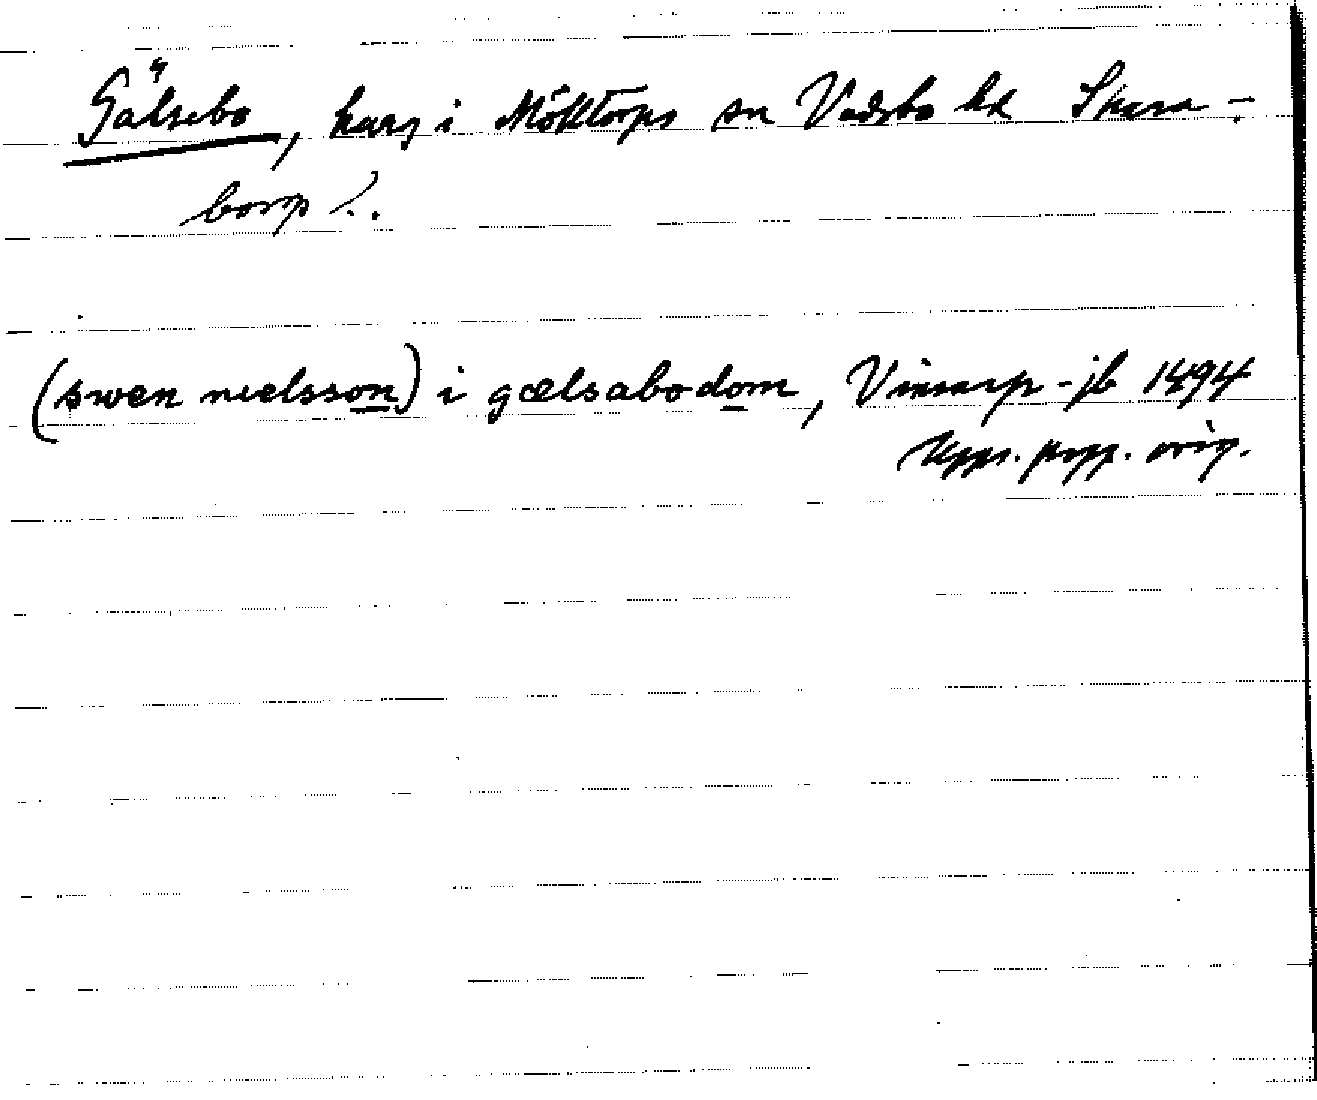 Gälsebo, herg i Möktorps sn Vadsbo hd Skara-
borgs l.
(swen nielsson) i gælsabodom, Vinsarp-jb 1494
Upps. papp. orig.